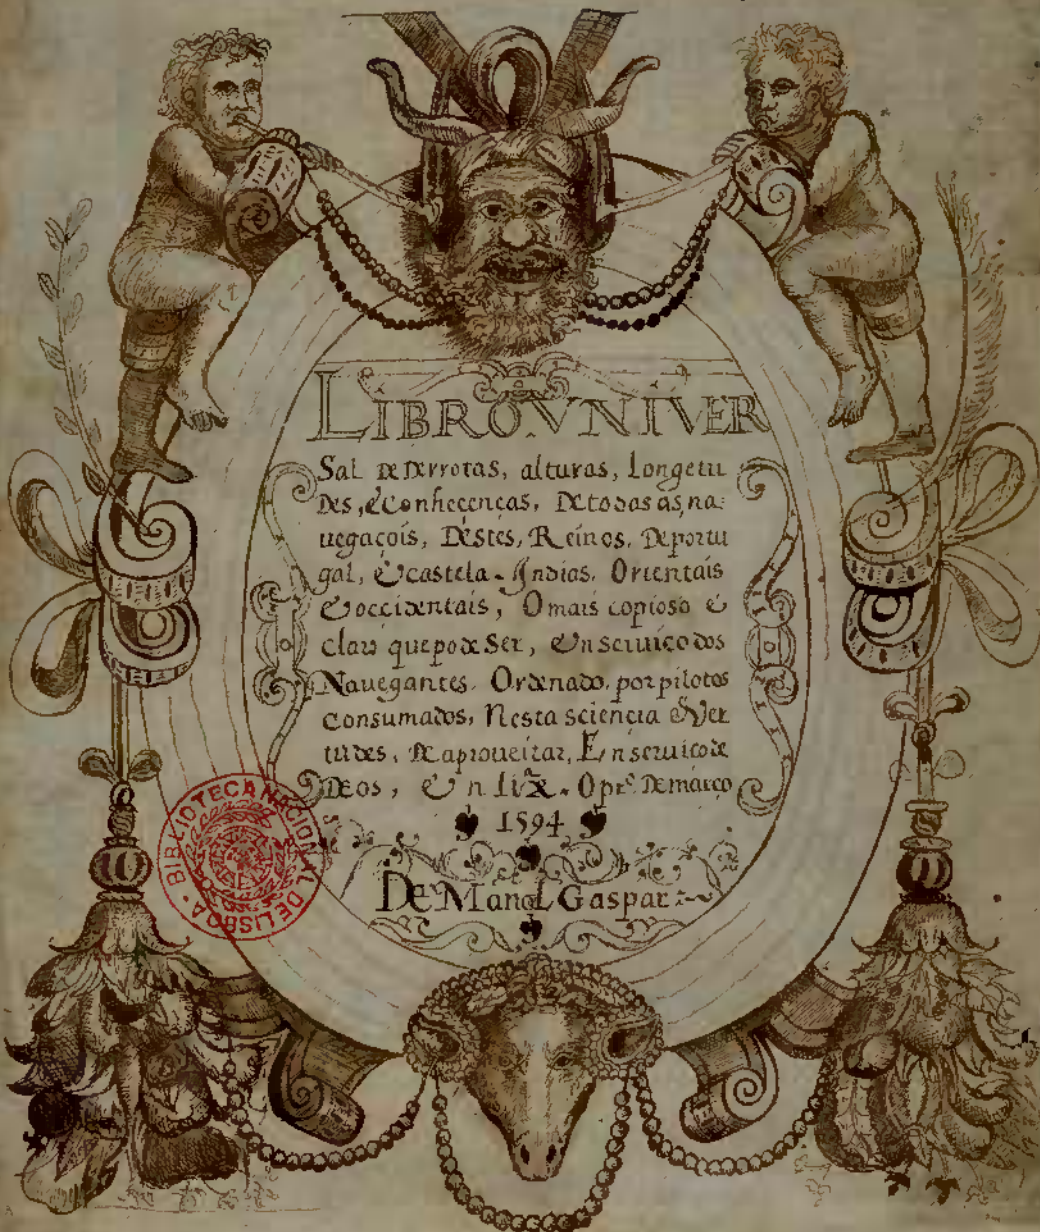 LIBRO.VNIVER
Sal De Derrotas, alturas, Longetu
Des, e Conhecenças, De todas as na:
uegaçois, Destes, Reinos. De portu
gal, E castela. Indias. Orientais
E occidentais, O mais copioso e
claro que pode Ser, En seruico dos
Nauegantes. Ordenado. por pilotos
consumados, Nesta sciencia E Ver
tudes, De aproueitar, En seruico de
Deos, E n lixª. O prº. De março
1594
De Manoel Gaspar
BIBLIOTECA NACIONAL DE LISBOA